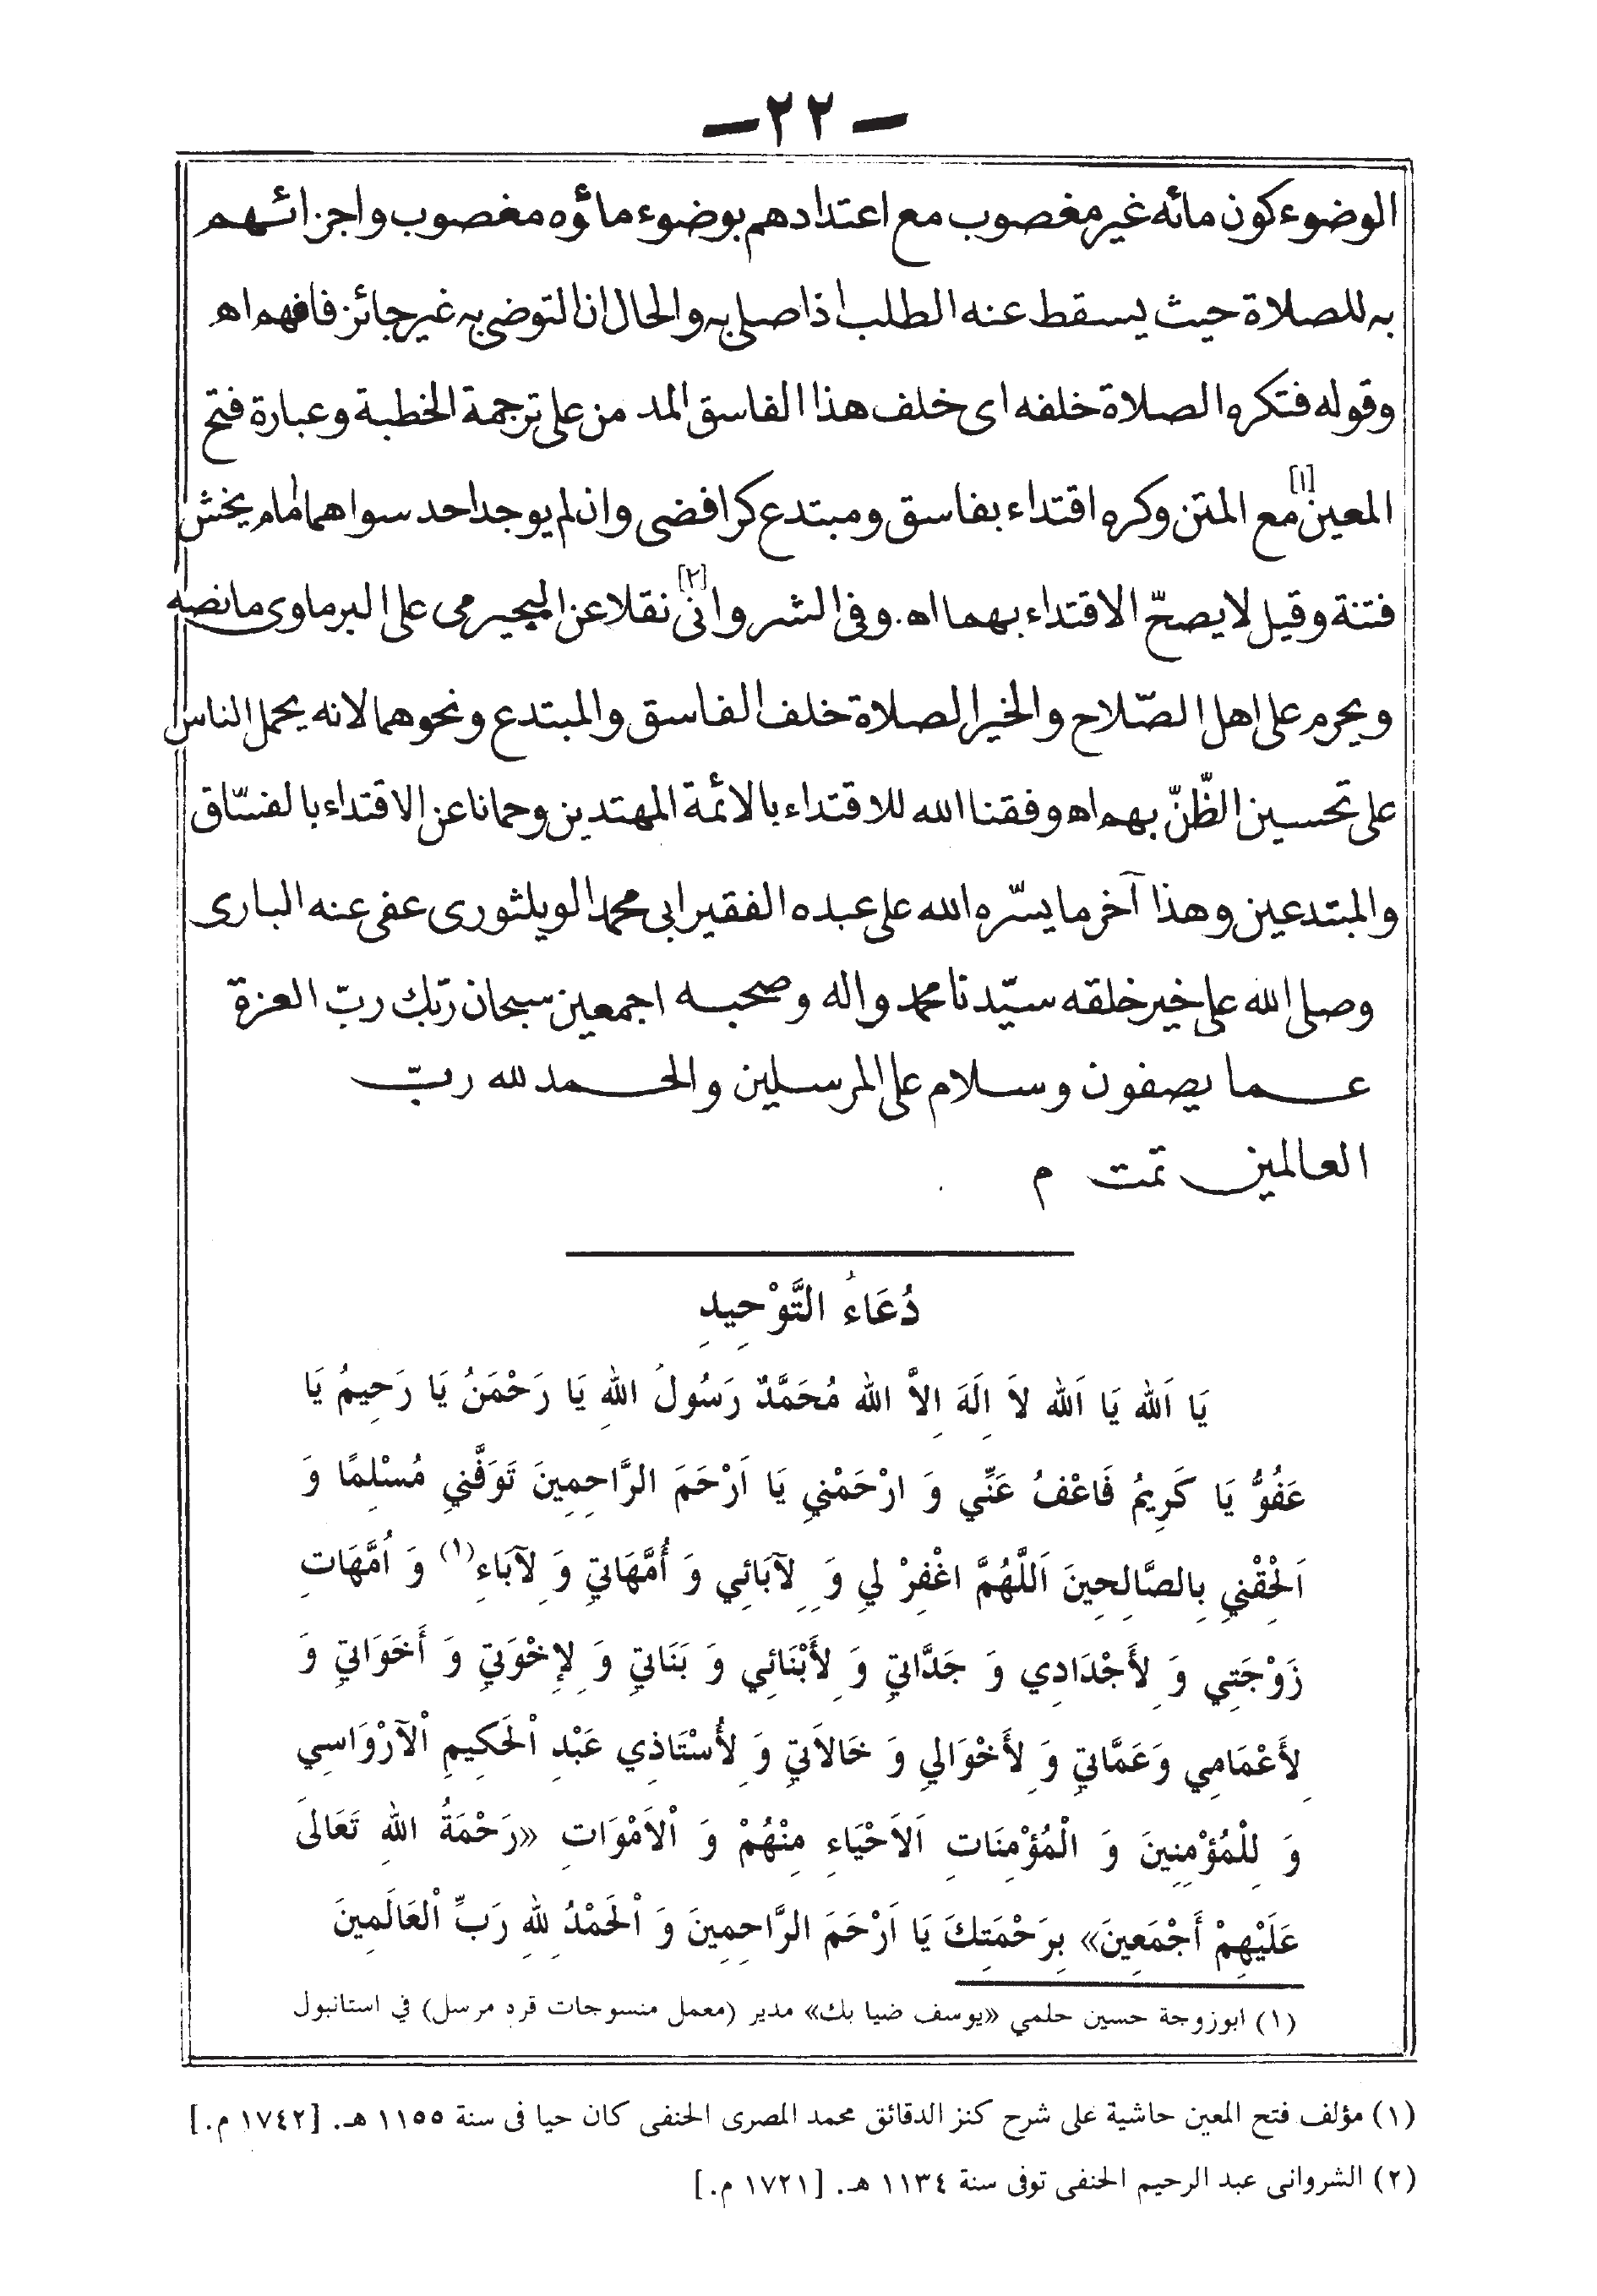 — ٢٢ —
الوضوء كون مائه غير مغصوب مع اعتدادهم بوضوء ماؤه مغصوب واجزائهم
به للصلاة حيث يسقط عنه الطلب اذا صلى به والحال ان التوضى به غير جائز فافهم اه
وقوله فتكره الصلاة خلفه اى خلف هذا الفاسق المد من على ترجمة الخطبة وعبارة فتح
المعين[١] مع المتن وكره اقتداء بفاسق ومبتدع كرافضى وان لم يوجد احد سواهما امام يخش
فتنة وقيل لا يصحّ الاقتداء بهما اه. وفى الشروانى[٢] نقلا عن البجيرمى على البرماوى ما نصه
ويحرم على اهل الصّلاح والخير الصلاة خلف الفاسق والمبتدع ونحوهما لانه يحمل الناس
على تحسين الظّنّ بهم اه وفقنا الله للاقتداء بالائمة المهتدين وحمانا عن الاقتداء بالفسّاق
والمبتدعين وهذا آخر ما يسّره الله على عبده الفقير ابى محمد الويلثورى عفى عنه البارى
وصلى الله على خير خلقه سيّدنا محمد واله وصحبه اجمعين سبحان ربّك ربّ العزة
عما يصفون وسلام على المرسلين والحمد لله ربّ
العالمين تمت م
دُعَاءُ التَّوْحِيدِ
يَا اَلله يَا اَلله لاَ اِلَهَ اِلاَّ الله مُحَمَّدٌ رَسُولُ اللهِ يَا رَحْمَنُ يَا رَحِيمُ يَا
عَفُوُّ يَا كَرِيمُ فَاعْفُ عَنِّي وَ ارْحَمْنِي يَا اَرْحَمَ الرَّاحِمِينَ تَوَفَّنِي مُسْلِمًا وَ
اَلْحِقْنِي بِالصَّالِحِينَ اَللَّهُمَّ اغْفِرْ لِي وَ لِآبَائِي وَ أُمَّهَاتِي وَ لِآبَاءِ(١) وَ اُمَّهَاتِ
زَوْجَتِي وَ لِأَجْدَادِي وَ جَدَّاتِي وَ لِأَبْنَائِي وَ بَنَاتِي وَ لِإِخْوَتِي وَ أَخَوَاتِي وَ
لِأَعْمَامِي وَعَمَّاتِي وَ لِأَخْوَالِي وَ خَالاَتِي وَ لِأُسْتَاذِي عَبْدِ اْلحَكِيمِ اْلآرْوَاسِي
وَ لِلْمُؤْمِنِينَ وَ الْمُؤْمِنَاتِ اَلاَحْيَاءِ مِنْهُمْ وَ اْلاَمْوَاتِ «رَحْمَةُ اللهِ تَعَالَى
عَلَيْهِمْ أَجْمَعِينَ» بِرَحْمَتِكَ يَا اَرْحَمَ الرَّاحِمِينَ وَ اْلحَمْدُ لِلهِ رَبِّ اْلعَالَمِينَ
(١) ابوزوجة حسين حلمي «يوسف ضيا بك» مدير (معمل منسوجات قره مرسل) في استانبول
(١) مؤلف فتح المعين حاشية على شرح كنز الدقائق محمد المصرى الحنفى كان حيا فى سنة ١١٥٥ هـ. [١٧٤٢ م.]
(٢) الشروانى عبد الرحيم الحنفى توفى سنة ١١٣٤ هـ. [١٧٢١ م.]